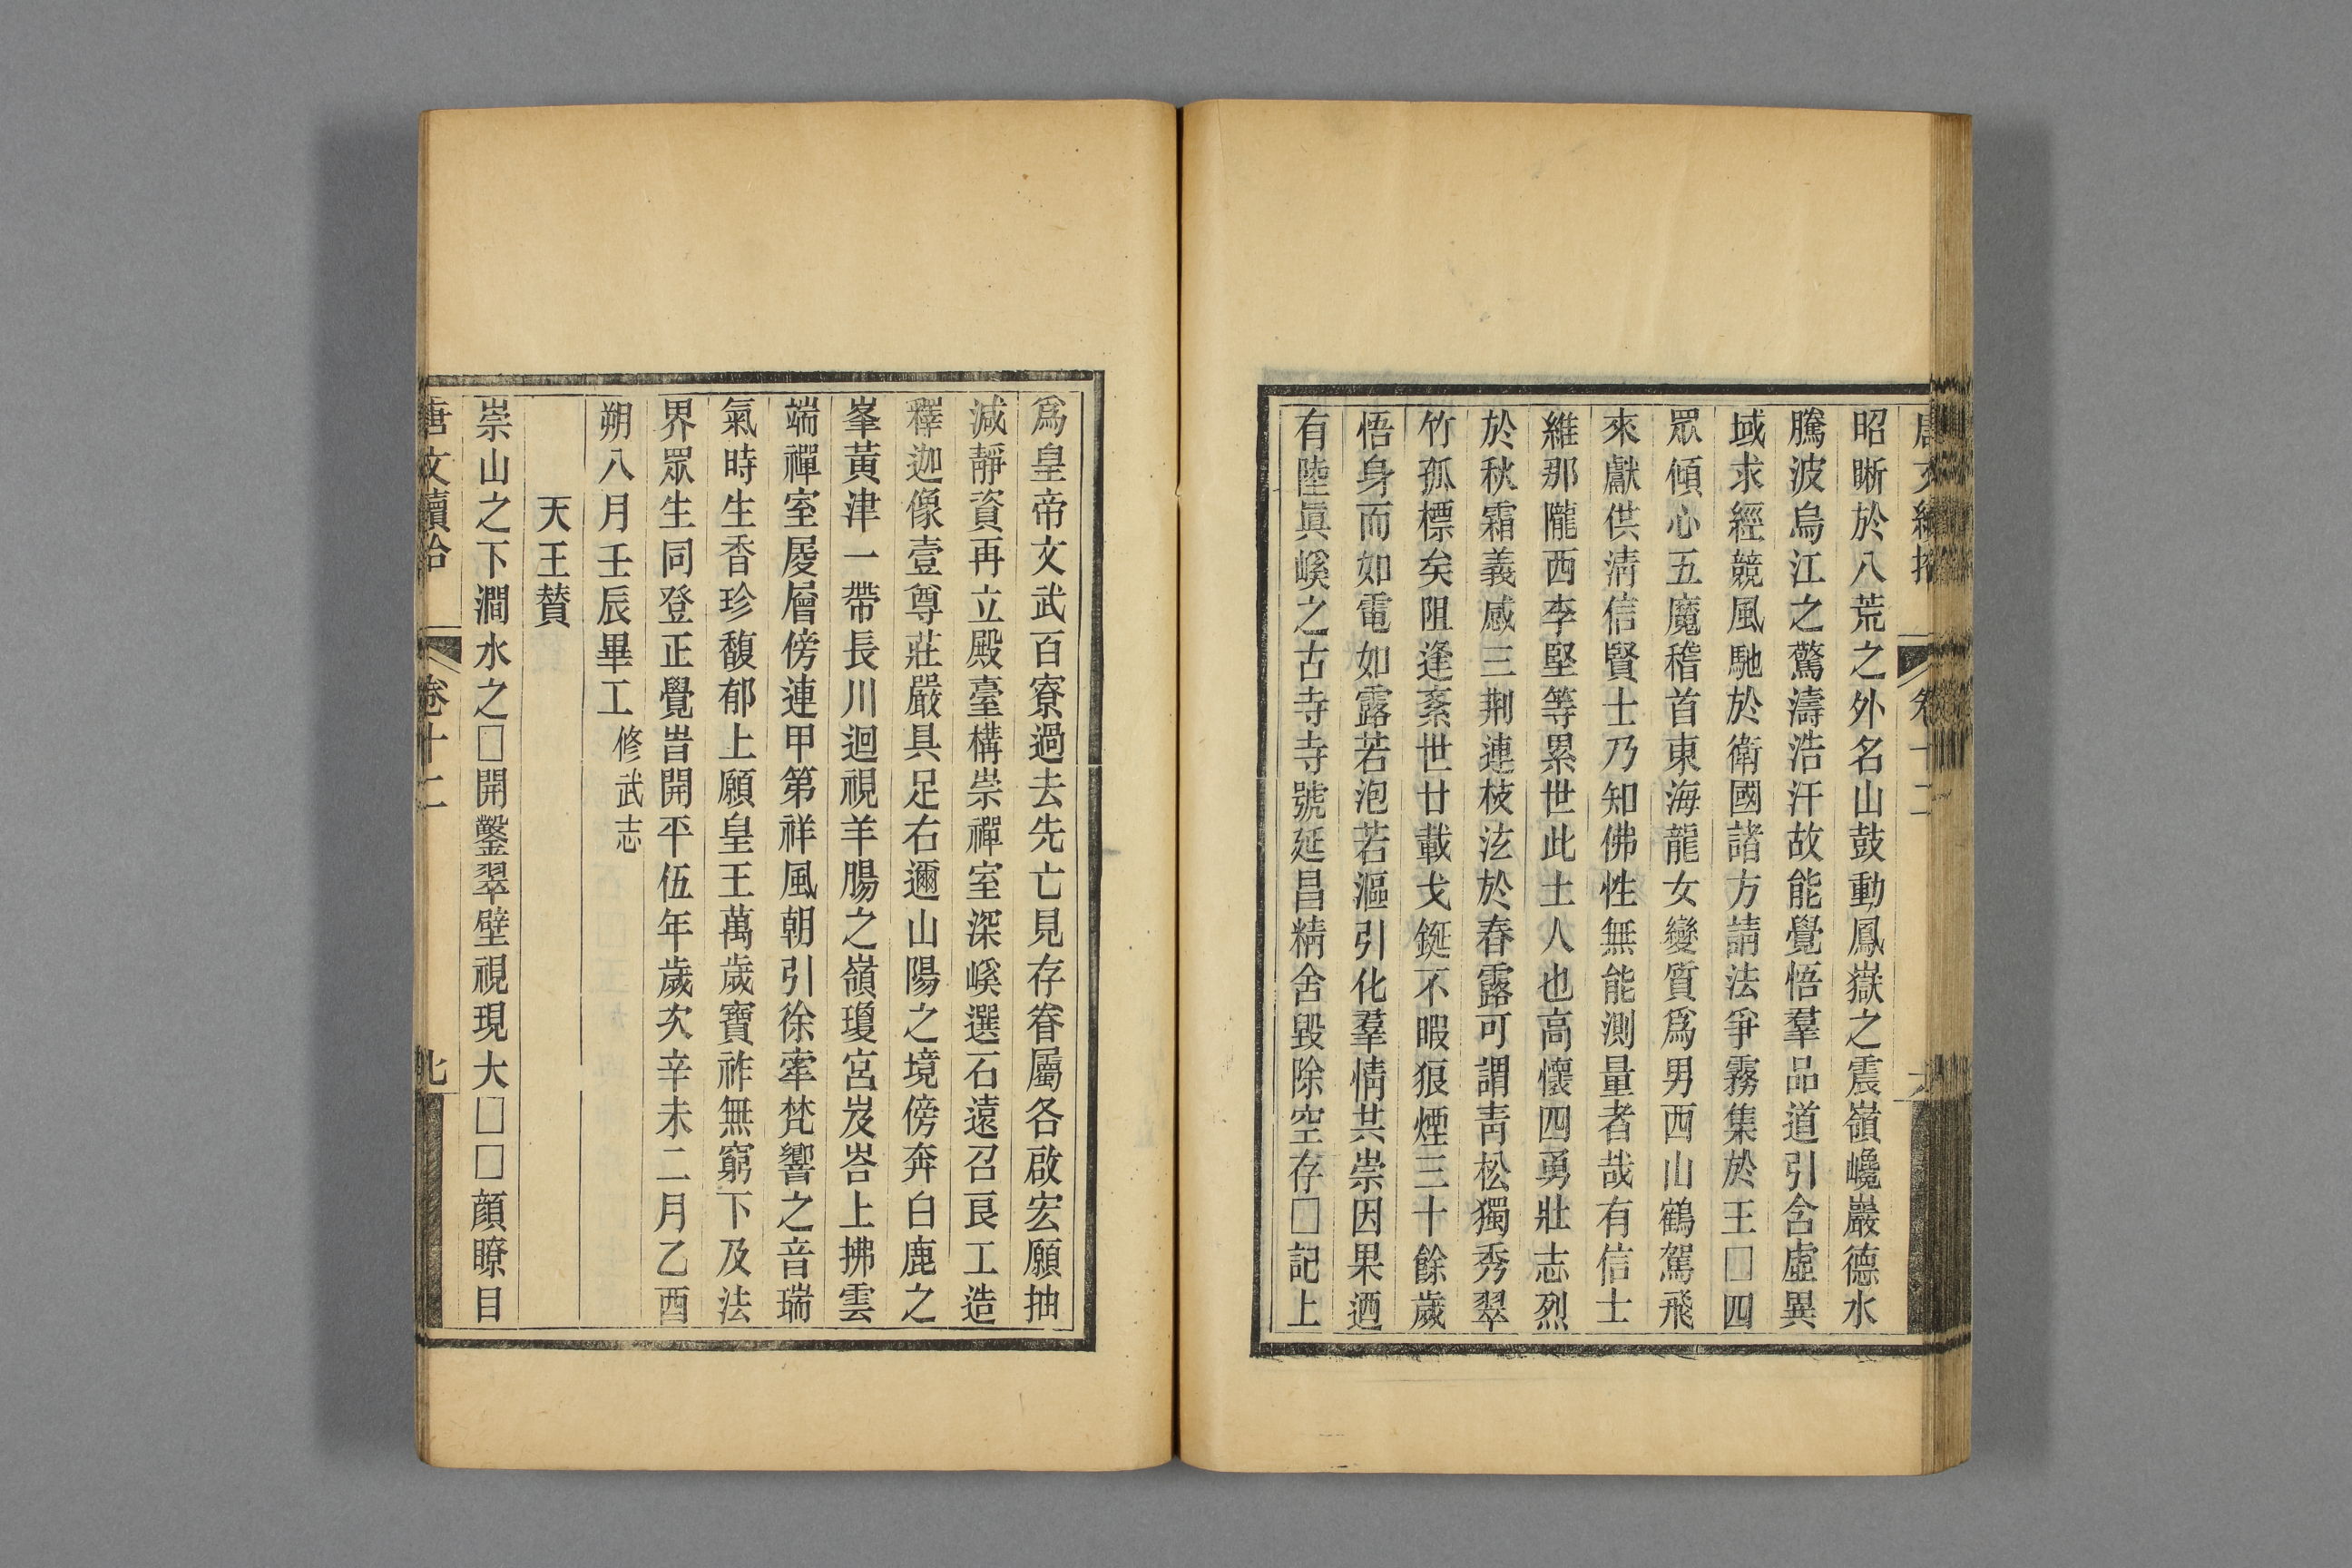 昭晰於八荒之外名山鼓動鳳嶽之震嶺巉巖德水
騰波烏江之驚濤浩汗故能覺悟羣品道引含虛異
域求經競風馳於衛國諸方請法爭霧集於王□四
眾傾心五魔稽首東海龍女變質爲男西山鶴駕飛
來獻供清信賢士乃知佛性無能測量者哉有信士
維那隴西李堅等累世此土人也高懷四勇壯志烈
於秋霜義感三荆連枝泫於春露可謂靑松獨秀翠
竹孤標矣阻逢紊世廿載戈鋋不暇狼煙三十餘歲
悟身而如電如露若泡若漚引化羣情其崇因果迺
有陸眞峪之古寺寺號延昌精舍毀除空存□記上
爲皇帝文武百寮過去先亡見存眷屬各啟宏願抽
減靜資再立殿臺構崇禪室深峪選石遠召良工造
釋迦像壹尊莊嚴具足右邇山陽之境傍奔白鹿之
峯黃津一帶長川迴視羊腸之嶺瓊宮岌峇上拂雲
端禪室屢層傍連甲第祥風朝引徐牽梵響之音瑞
氣時生香珍馥郁上願皇王萬歲寶祚無窮下及法
界眾生同登正覺旹開平伍年歲次辛未二月乙酉
朔八月壬辰畢工修武志
天王贊
崇山之下澗水之□開鑿翠壁視現大□□顏瞭目
唐文續拾 卷十二